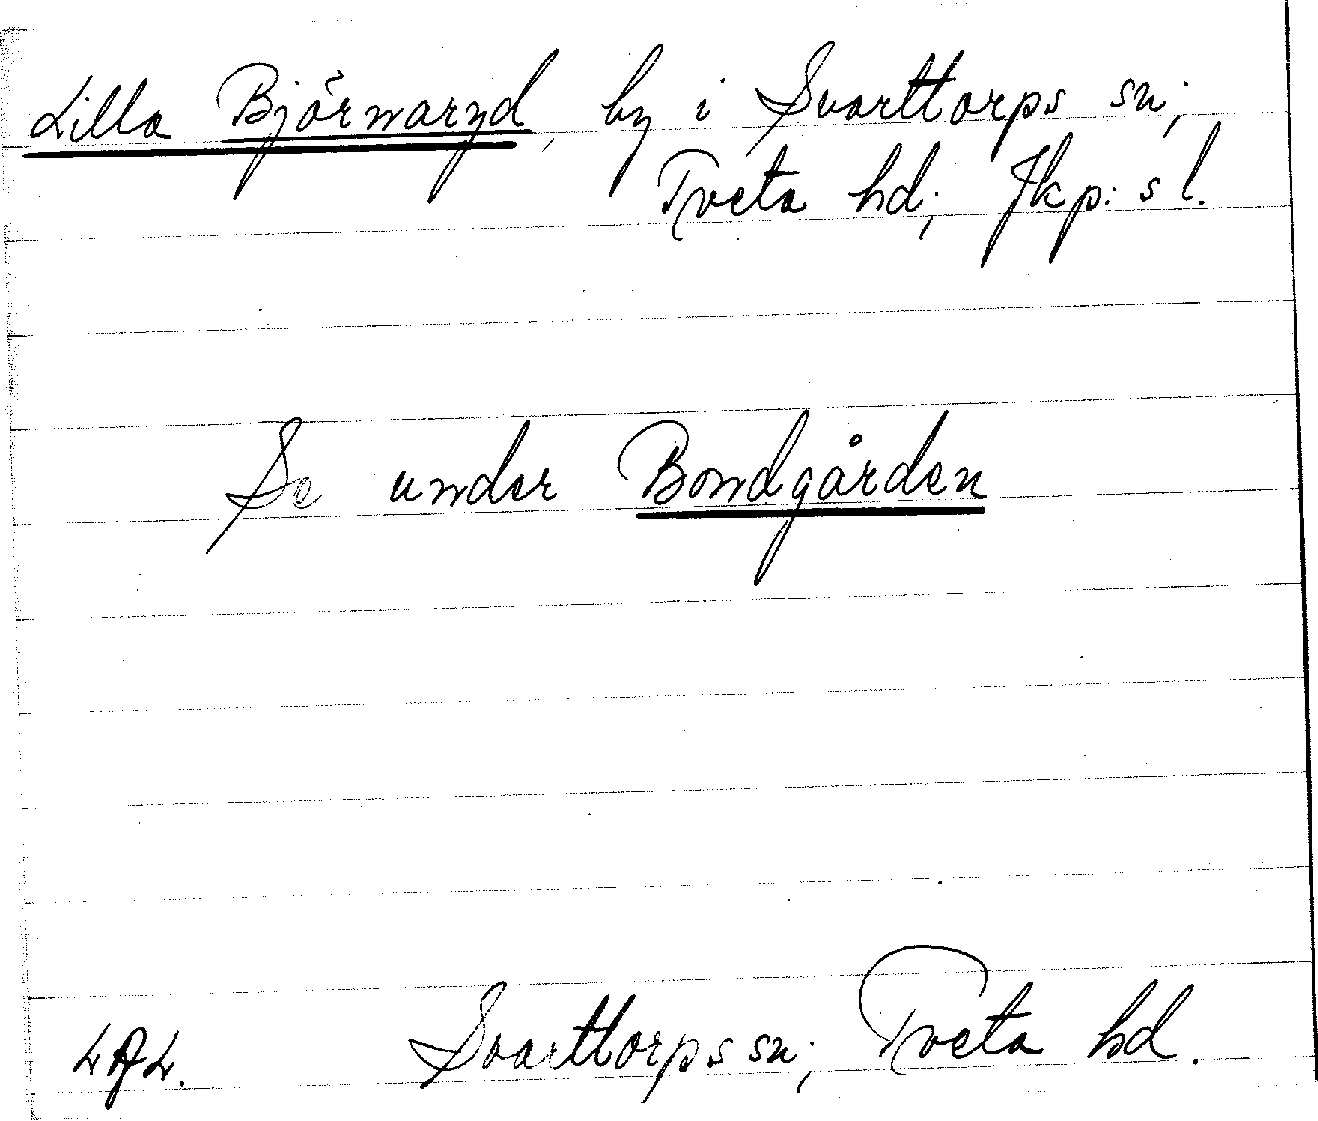 Lilla Björnaryd, by i Svarttorps sn;
Tveta hd; Jkp:s l.
Se under Bondgården
Svarttorps sn; Tveta hd.